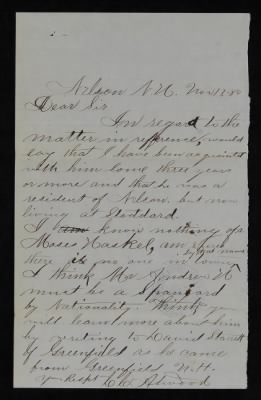 Nelson N.H. Nov 13-80
Dear Sir
In regard to the
matter in reference would
say that I have been acquainted
with him some three years
or more and that he was a
resident of Nelson but now
living at Stoddard.
I know nothing of a
Moses Haskel, am sure
there is no one in town
by that name
I think Mr
must be a Spaniard
by Nationality. Think you
will learn more about him
by writing to David Starrett
of Greenfield as he came
from Greenfield N.H.
Yr Respt Atwood